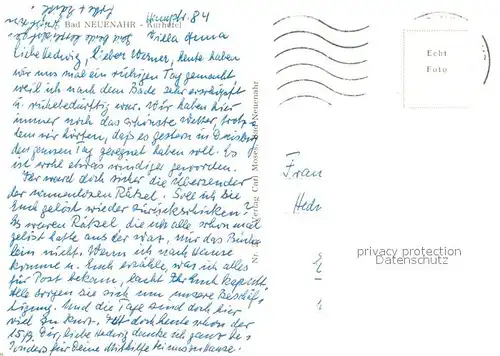 Bad NEUENAHR - Kurhotel
Hauptstr. 84
Villa Anna
Liebe Hedwig, lieber Werner, heute haben
wir uns mal ein ruhigen Tag gemacht
weil ich nach dem Bade sehr erschöpft
u. ruhebedürftig war. Wir haben hier
immer noch das schönste Wetter, trotz-
dem wir hörten, dass es gestern in Duisburg
den ganzen Tag geregnet haben soll. Es
ist wohl etwas windiger geworden.
Ihr ward doch sicher die Übersender
der namenlosen Rätsel. Soll ich die
Euch gelöst wieder zurückschicken?
Es waren Rätsel, die ich alle schon mal
gelöst hatte aus der war, nur das Büch-
lein nicht. Wenn ich nach Hause
komme u. Euch erzähle, was ich alles
für Post bekam, lacht Ihr Euch kaputt.
Alle sorgen sie sich um unsere Beschäf-
tigung. Und die Tage sind doch hier
viel zu kurz. Ist doch heute schon der
15. Dir, liebe Hedwig danke ich ganz be-
sonders für Deine Mithilfe bei uns zu Hause.
Verlag Carl Moses, Bad Neuenahr
Nr.
Echt
Foto
Frau
Hedw
privacy protection
Datenschutz